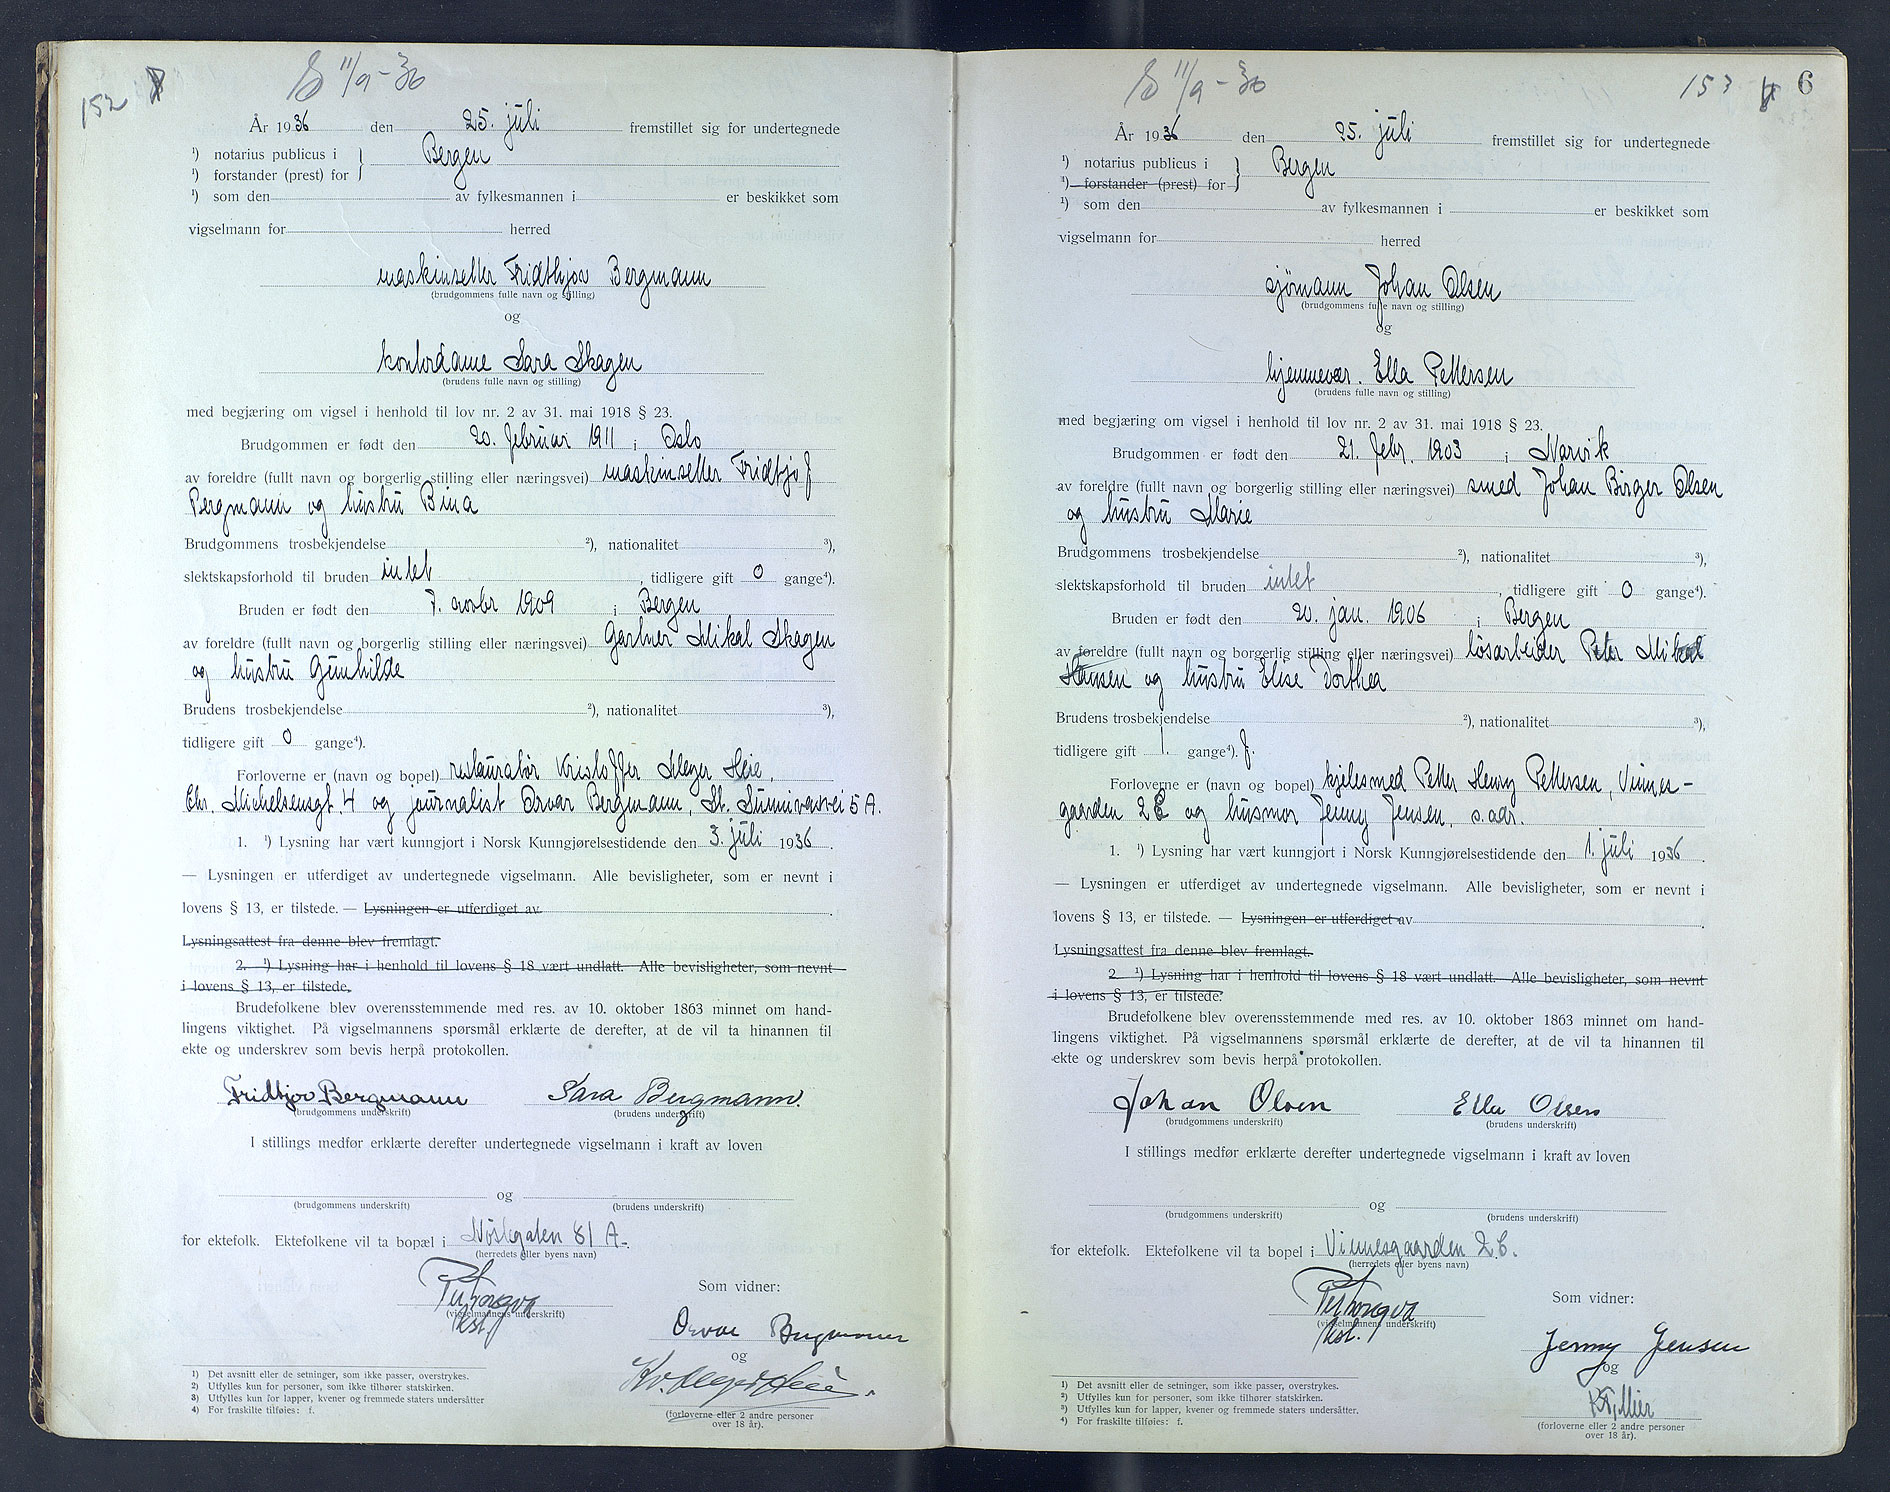 152
11/9 - 36
År 1936 den 25. juli fremstillet sig for undertegnede
¹) notarius publicus i } Bergen
¹) forstander (prest) for
¹) som den av fylkesmannen i er beskikket som
vigselmann for herred
maskinsetter Fridthjov Bergmann
(brudgommens fulle navn og stilling)
og
kontordame Sara Skagen
(brudens fulle navn og stilling)
med begjæring om vigsel i henhold til lov nr. 2 av 31. mai 1918 § 23.
Brudgommen er født den 20. februar 1911 i Oslo
av foreldre (fullt navn og borgerlig stilling eller næringsvei) maskinsetter Fridtjof
Bergmann og hustru Bina
Brudgommens trosbekjendelse ²), nationalitet ³),
slektskapsforhold til bruden intet , tidligere gift 0 gange⁴).
Bruden er født den 7. novbr 1909 i Bergen
av foreldre (fullt navn og borgerlig stilling eller næringsvei) Gartner Mikal Skagen
og hustru Gunhilde
Brudens trosbekjendelse ²), nationalitet ³),
tidligere gift 0 gange⁴).
Forloverne er (navn og bopel) restauratør Kristoffer Meyer Heie,
Chr. Michelsensgt. 4 og journalist Orvar Bergmann, St. Sunnivasvei 5 A.
1. ¹) Lysning har vært kunngjort i Norsk Kunngjørelsestidende den 3. juli 1936.
— Lysningen er utferdiget av undertegnede vigselmann. Alle bevisligheter, som er nevnt i
lovens § 13, er tilstede. — Lysningen er utferdiget av .
Lysningsattest fra denne blev fremlagt.
2. ¹) Lysning har i henhold til lovens § 18 vært undlatt. Alle bevisligheter, som nevnt
i lovens § 13, er tilstede.
Brudefolkene blev overensstemmende med res. av 10. oktober 1863 minnet om hand-
lingens viktighet. På vigselmannens spørsmål erklærte de derefter, at de vil ta hinannen til
ekte og underskrev som bevis herpå protokollen.
Fridtjov Bergmann Sara Bergmann.
(brudgommens underskrift) (brudens underskrift)
I stillings medfør erklærte derefter undertegnede vigselmann i kraft av loven
og
(brudgommens underskrift) (brudens underskrift)
for ektefolk. Ektefolkene vil ta bopæl i Nøstegaten 81 A.
(herredets eller byens navn)
(vigselmannens underskrift)
Som vidner:
Orvar Bergmann
og
Kr. Meyer Heie.
(forloverne eller 2 andre personer
over 18 år).
1) Det avsnitt eller de setninger, som ikke passer, overstrykes.
2) Utfylles kun for personer, som ikke tilhører statskirken.
3) Utfylles kun for lapper, kvener og fremmede staters undersåtter
4) For fraskilte tilføies: f.
11/9 - 36
153 6
År 1936 den 25. juli fremstillet sig for undertegnede
¹) notarius publicus i } Bergen
¹) forstander (prest) for
¹) som den av fylkesmannen i er beskikket som
vigselmann for herred
sjømann Johan Olsen
(brudgommens fulle navn og stilling)
og
hjemmevær. Ella Pettersen
(brudens fulle navn og stilling)
med begjæring om vigsel i henhold til lov nr. 2 av 31. mai 1918 § 23.
Brudgommen er født den 21. febr. 1903 i Narvik
av foreldre (fullt navn og borgerlig stilling eller næringsvei) smed Johan Birger Olsen
og hustru Marie
Brudgommens trosbekjendelse ²), nationalitet ³),
slektskapsforhold til bruden intet , tidligere gift 0 gange⁴).
Bruden er født den 20. jan. 1906 i Bergen
av foreldre (fullt navn og borgerlig stilling eller næringsvei) løsarbeider Peter Mikal
Hansen og hustru Elise Dorthea
Brudens trosbekjendelse ²), nationalitet ³),
tidligere gift 1. gange⁴). f.
Forloverne er (navn og bopel) kjelesmed Petter Henry Pettersen, Vinnes-
gaarden 2 C og husmor Jenny Jensen, s. adr.
1. ¹) Lysning har vært kunngjort i Norsk Kunngjørelsestidende den 1. juli 1936.
— Lysningen er utferdiget av undertegnede vigselmann. Alle bevisligheter, som er nevnt i
lovens § 13, er tilstede. — Lysningen er utferdiget av .
Lysningsattest fra denne blev fremlagt.
2. ¹) Lysning har i henhold til lovens § 18 vært undlatt. Alle bevisligheter, som nevnt
i lovens § 13, er tilstede.
Brudefolkene blev overensstemmende med res. av 10. oktober 1863 minnet om hand-
lingens viktighet. På vigselmannens spørsmål erklærte de derefter, at de vil ta hinannen til
ekte og underskrev som bevis herpå protokollen.
Johan Olsen Ella Olsen
(brudgommens underskrift) (brudens underskrift)
I stillings medfør erklærte derefter undertegnede vigselmann i kraft av loven
og
(brudgommens underskrift) (brudens underskrift)
for ektefolk. Ektefolkene vil ta bopel i Vinnesgaarden 2 C.
(herredets eller byens navn)
(vigselmannens underskrift)
Som vidner:
Jenny Jensen
og
(forloverne eller 2 andre personer
over 18 år).
1) Det avsnitt eller de setninger, som ikke passer, overstrykes.
2) Utfylles kun for personer, som ikke tilhører statskirken.
3) Utfylles kun for lapper, kvener og fremmede staters undersåtter.
4) For fraskilte tilføies: f.